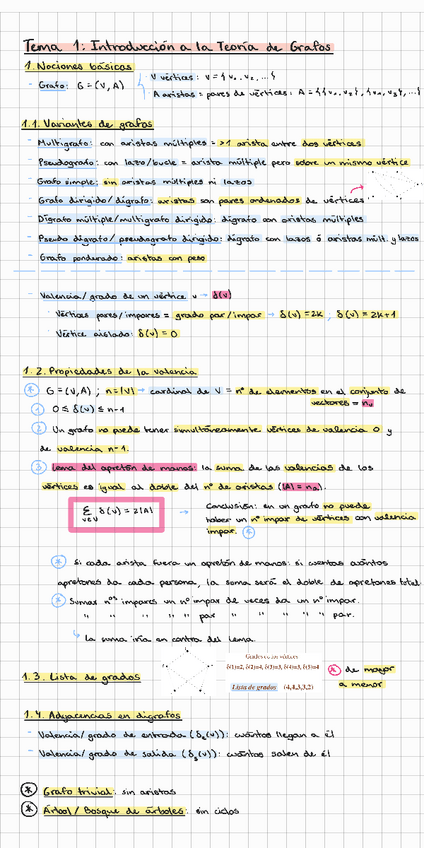 Tema 1: Introducción a la Teoría de Grafos
1. Nociones básicas
- Grafo: G=(V,A)
V vértices: V={v₁,v₂,...}
A aristas = pares de vértices: A={{v₁,v₂},{v₁,v₃},...}
1.1. Variantes de grafos
- Multigrafo: con aristas múltiples = >1 arista entre dos vértices
- Pseudografo: con lazo/bucle = arista múltiple pero sobre un mismo vértice
- Grafo simple: sin aristas múltiples ni lazos
- Grafo dirigido/dígrafo: aristas son pares ordenados de vértices
- Dígrafo múltiple/multigrafo dirigido: dígrafo con aristas múltiples
- Pseudo dígrafo/pseudografo dirigido: dígrafo con lazos ó aristas múlt. y lazos
- Grafo ponderado: aristas con peso
- Valencia/grado de un vértice v → δ(v)
· Vértices pares/impares = grado par/impar → δ(v)=2k ; δ(v)=2k+1
· Vértice aislado: δ(v)=0
1.2. Propiedades de la valencia
* G=(V,A) ; n=|V| → cardinal de V = nº de elementos en el conjunto de
vectores = nᵥ
1 0≤δ(v)≤n-1
2 Un grafo no puede tener simultáneamente vértices de valencia 0 y
de valencia n-1.
3 Lema del apretón de manos: la suma de las valencias de los
vértices es igual al doble del nº de aristas (|A|=nₐ).
∑ δ(v) = 2|A|
v∈V
→ Conclusión: en un grafo no puede
haber un nº impar de vértices con valencia
impar. *
* Si cada arista fuera un apretón de manos: si cuentas cuántos
apretones da cada persona, la suma será el doble de apretones total.
* Sumar nºs impares un nº impar de veces da un nº impar.
" " " par " " " " " par.
↳ La suma iría en contra del lema.
1.3. Lista de grados
δ(1)=2, δ(2)=4, δ(3)=3, δ(4)=3, δ(5)=4
Lista de grados (4,4,3,3,2)
* de mayor
a menor
1.4. Adyacencias en dígrafos
- Valencia/grado de entrada (δₑ(v)): cuántos llegan a él
- Valencia/grado de salida (δₛ(v)): cuántos salen de él
* Grafo trivial: sin aristas
* Árbol/Bosque de árboles: sin ciclos